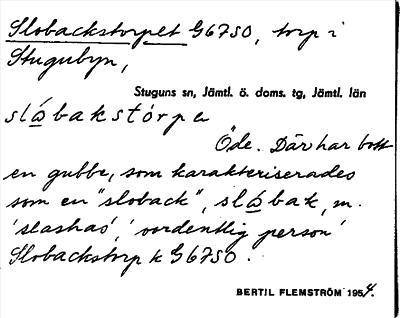 Slobackstorpet G6750, torp i
Stugubyn,
Stuguns sn, Jämtl. ö. doms. tg, Jämtl. län
slὼbakstórpa
Öde. Där har bott
en gubbe, som karakteriserades
som en "sloback", slὼbak, m.
'slashas', 'vordentlig person'
Slobackstorp k G6750.
BERTIL FLEMSTRÖM 1954.